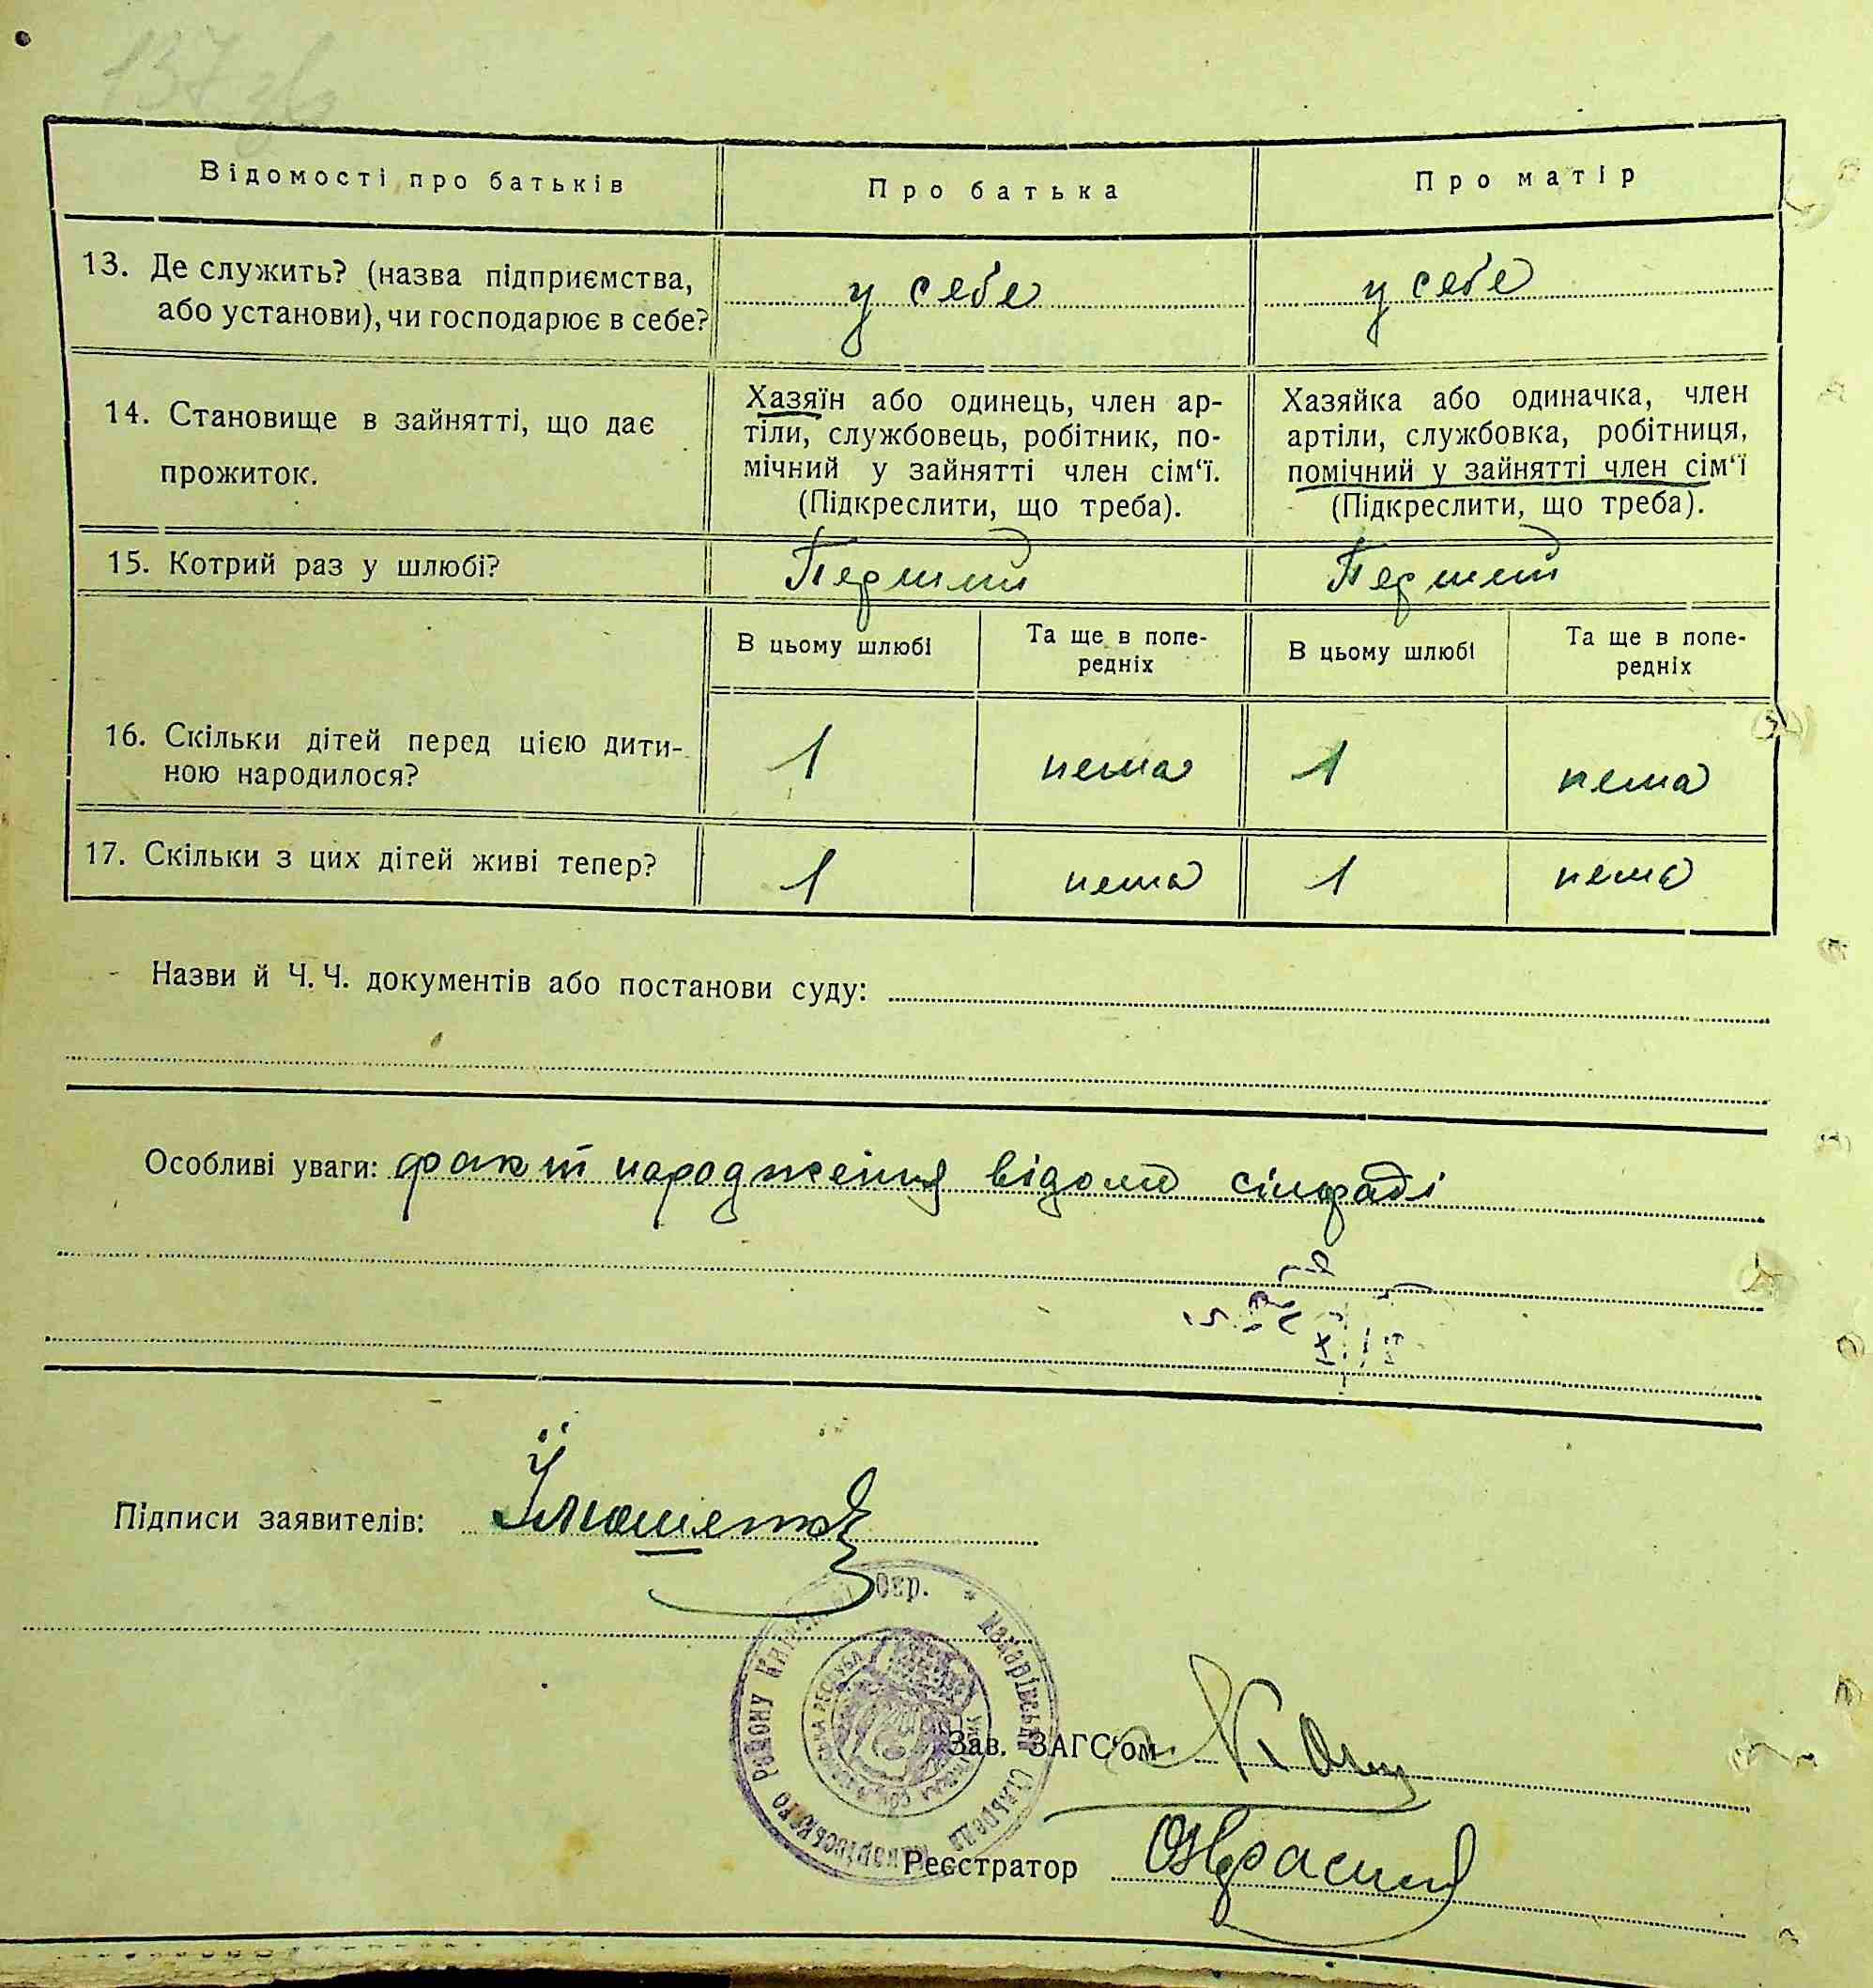 137 зв
Відомості про батьків
Про батька
Про матір
13. Де служить? (назва підприємства,
або установи), чи господарює в себе?
у себе
у себе
14. Становище в зайнятті, що дає
прожиток.
Хазяїн або одинець, член ар-
тіли, службовець, робітник, по-
мічний у зайнятті член сім‘ї.
(Підкреслити, що треба).
Хазяйка або одиначка, член
артіли, службовка, робітниця,
помічний у зайнятті член сім‘ї
(Підкреслити, що треба).
15. Котрий раз у шлюбі?
Перший
Перший
В цьому шлюбі
Та ще в попе-
редніх
В цьому шлюбі
Та ще в попе-
редніх
16. Скільки дітей перед цією дити-
ною народилося?
1
нема
1
нема
17. Скільки з цих дітей живі тепер?
1
нема
1
нема
Назви й Ч. Ч. документів або постанови суду:
Особливі уваги: факт народження відомо сільраді
Підписи заявителів:
Макарівська Сільрада Макарівського Району Київської Окр.
Зав. ЗАГС‘ом
Реєстратор